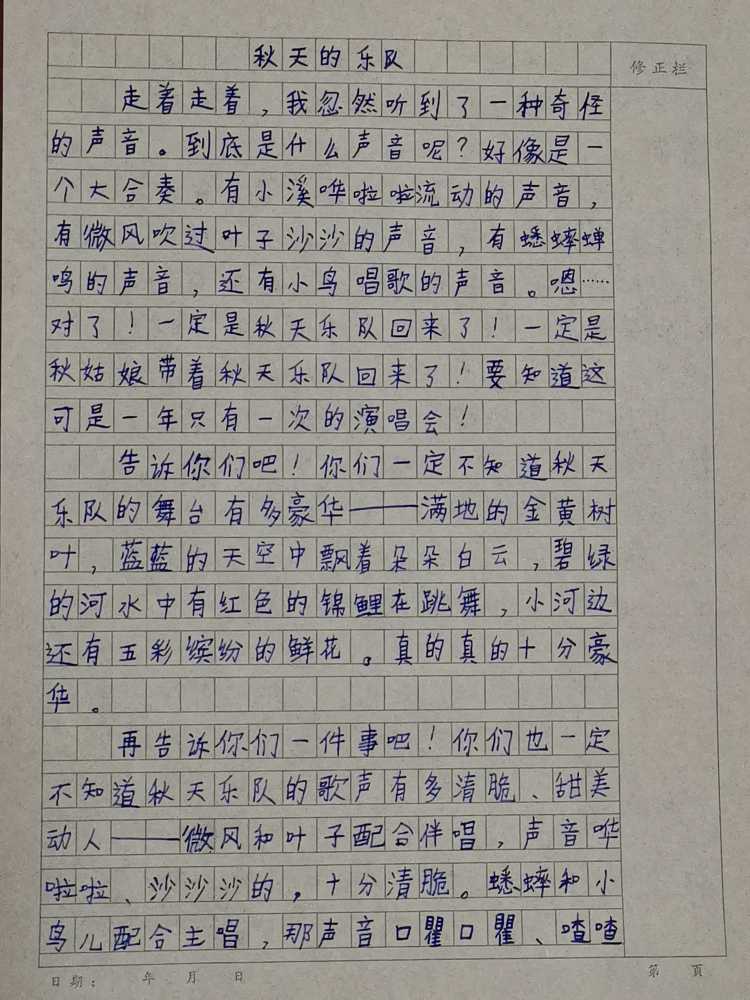 秋天的乐队
修正栏
走着走着，我忽然听到了一种奇怪
的声音。到底是什么声音呢？好像是一
个大合奏。有小溪哗啦啦流动的声音，
有微风吹过叶子沙沙的声音，有蟋蟀蝉
鸣的声音，还有小鸟唱歌的声音。嗯……
对了！一定是秋天乐队回来了！一定是
秋姑娘带着秋天乐队回来了！要知道这
可是一年只有一次的演唱会！
告诉你们吧！你们一定不知道秋天
乐队的舞台有多豪华——满地的金黄树
叶，蓝蓝的天空中飘着朵朵白云，碧绿
的河水中有红色的锦鲤在跳舞，小河边
还有五彩缤纷的鲜花。真的真的十分豪
华。
再告诉你们一件事吧！你们也一定
不知道秋天乐队的歌声有多清脆、甜美
动人——微风和叶子配合伴唱，声音哗
啦啦、沙沙沙的，十分清脆。蟋蟀和小
鸟儿配合主唱，那声音口瞿口瞿、喳喳
日期： 年 月 日 第 页